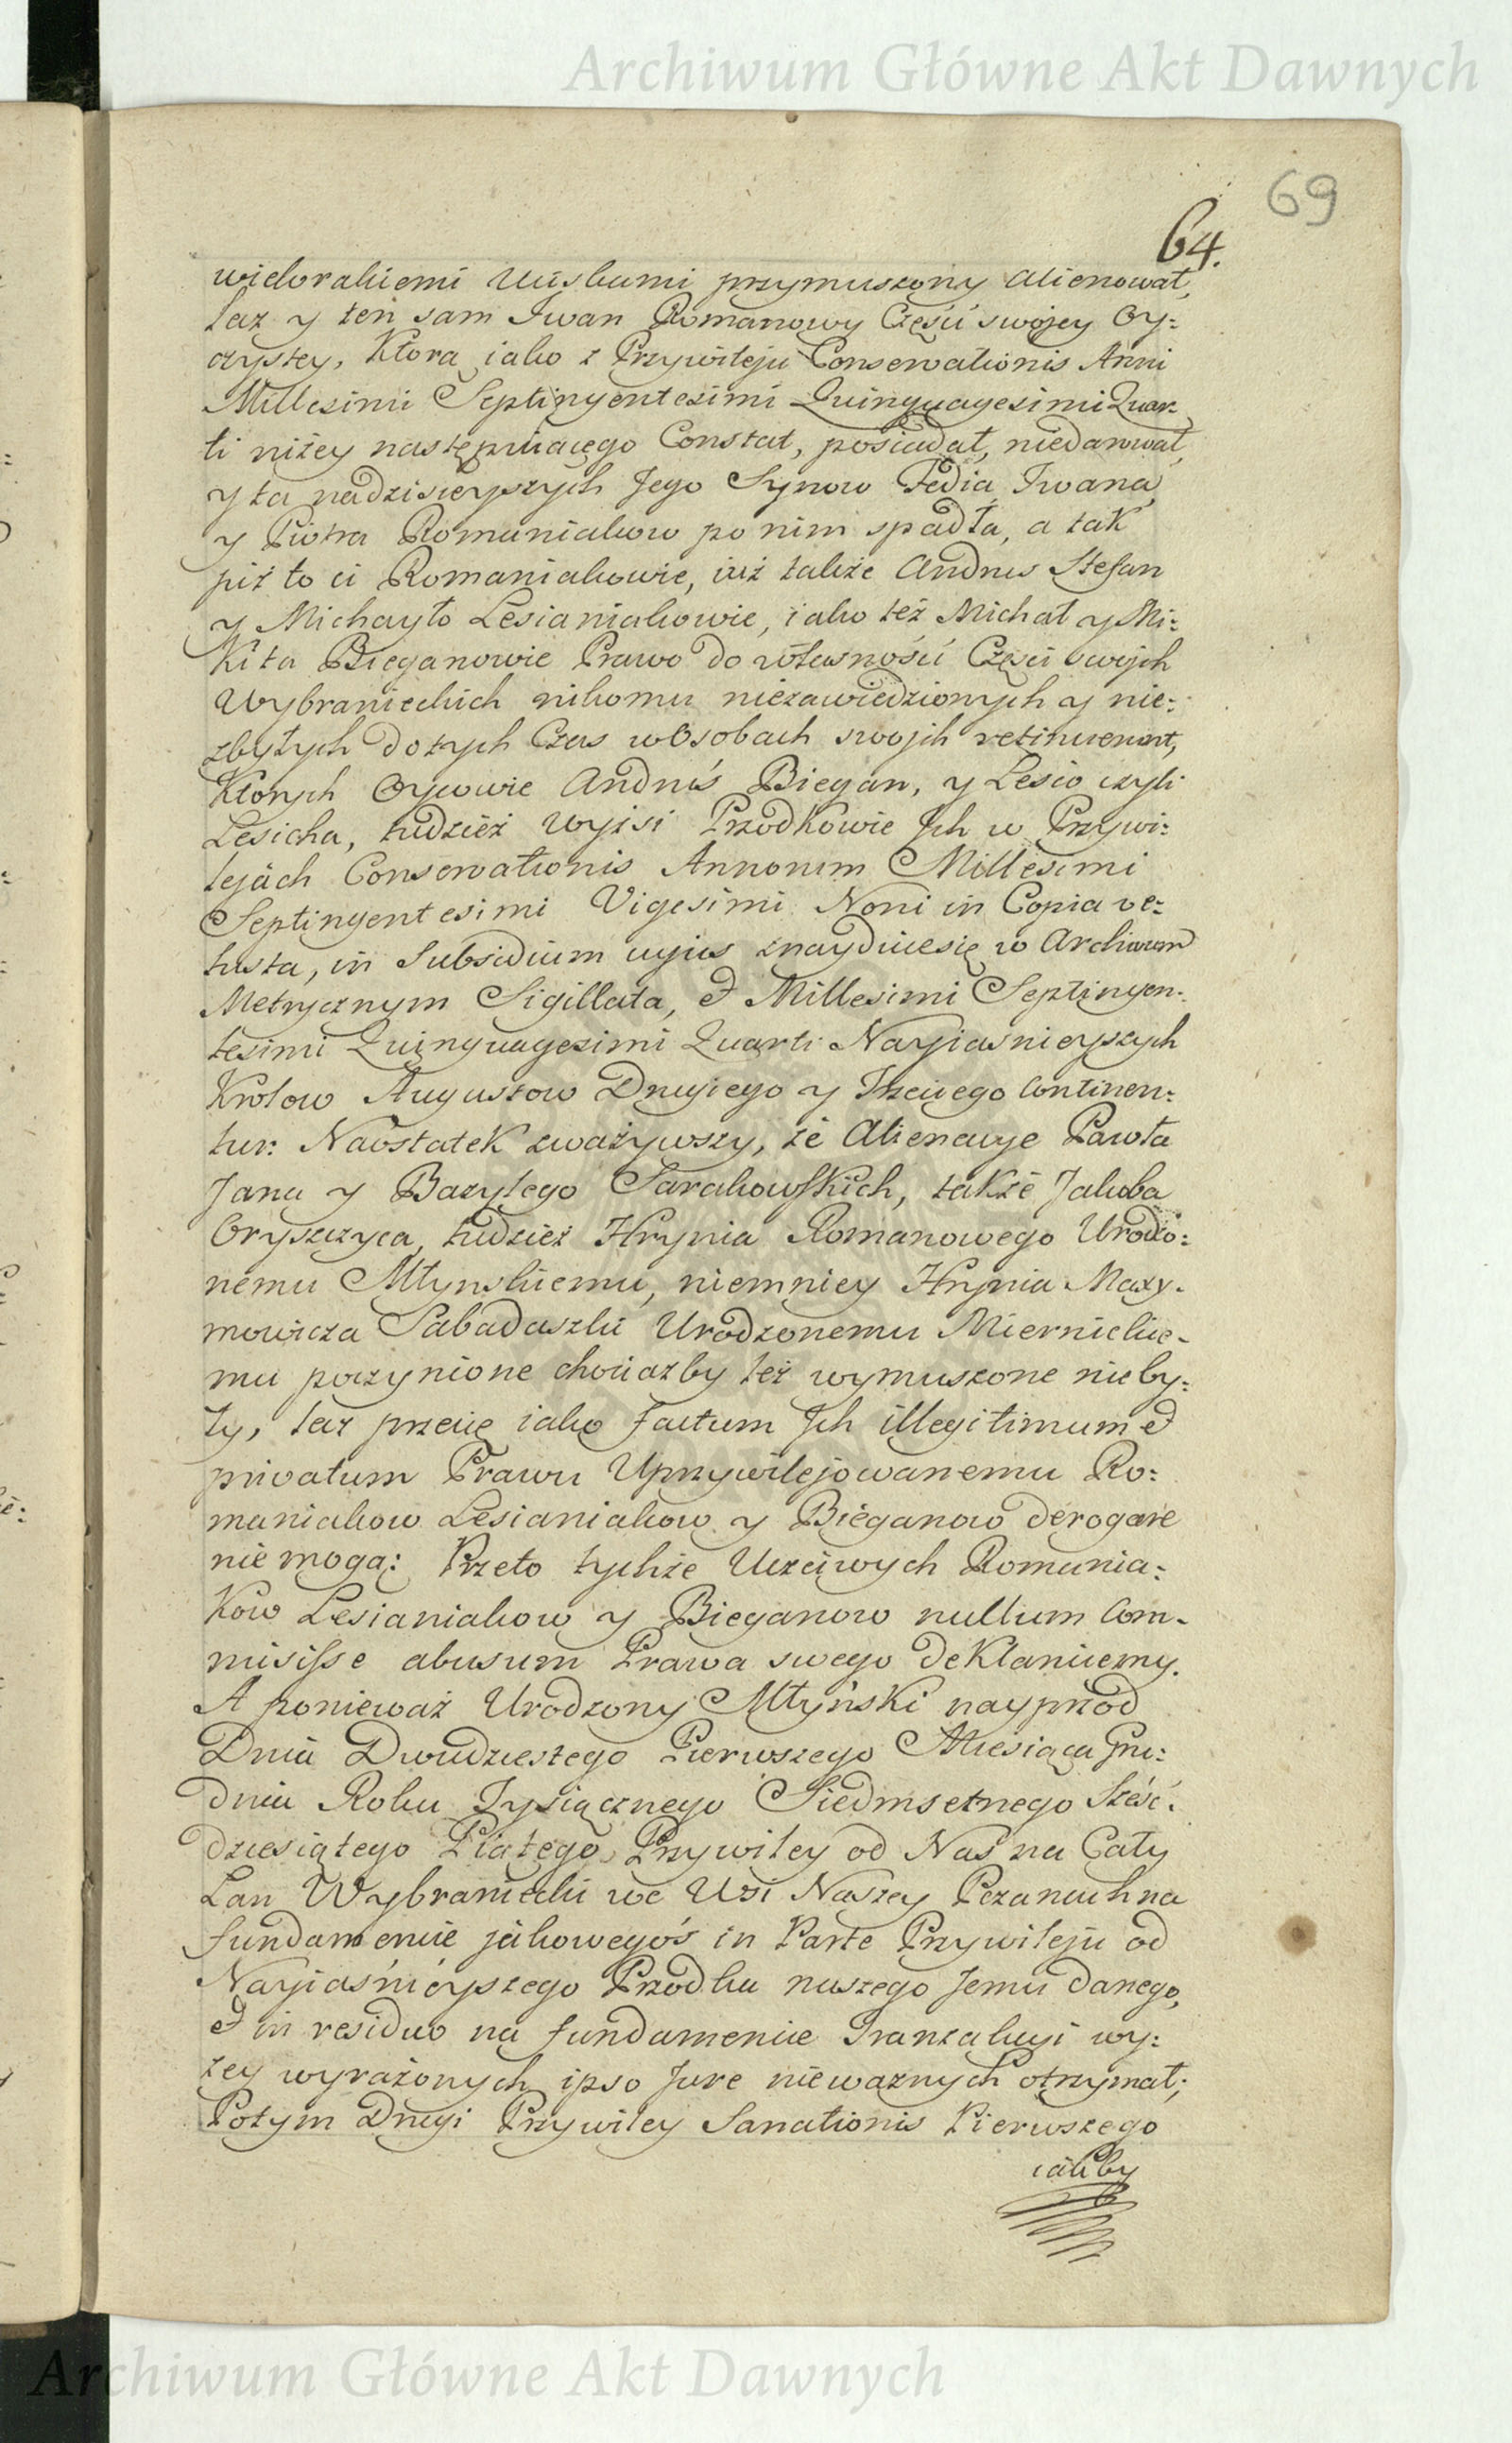 Archiwum Główne Akt Dawnych
69
64.
wielorakiemi Uciskami przymuszony alienował,
lecz y ten sam Iwan Romanowy Części swojey Oy:
czystey, Ktora iako z Przywileju Conservationis Anni
Millesimi Septingentesimi Quinquagesimi Quar:
ti niżey następuiącego Constat, posiadał, niedarował,
y ta na dzisieyszych Jego Synow Fedia, Iwana,
y Piotra Romaniakow po nim spadła, a tak
już to ci Romaniakowie, iuż także Andrus Stefan
y Michayło Lesianiakowie, iako też Michał y Mi:
kita Bieganowie Prawo do własności Części swojch
Wybranieckich nikomu niezawiedzionych y nie:
zbytych dotych Czas w Osobach swojch retinuerunt,
Ktorych Oycowie Andruś Biegan, y Lesio czyli
Lesicha, tudzież Wyżsi Przodkowie Jch w Przywi:
lejach Conservationis Annorum Millesimi
Septingentesimi Vigesimi Noni in Copia ve:
tusta, in Subsidium cujus znayduiesię w Archiwum
Metrycznym Sigillata, et Millesimi Septingen:
tesimi Quinquagesimi Quarti Nayiasnieyszych
Krolow Augustow Drugiego y Trzeciego Continen:
tur: Naostatek zważywszy, że Alienacye Pawła
Jana y Bazylego Sarakowskich, także Jakuba
Oryszczyca, tudzież Hrynia Romanowego Urodzo:
nemu Młynskiemu, niemniey Hrynia Maxy:
mowicza Sabadaszki Urodzonemu Miernickie:
mu poczynione chociażby też wymuszone nie by:
ły, lecz przecię iako factum Jch illegitimum et
privatum Prawu Uprzywilejowanemu Ro:
maniakow Lesianiakow y Bieganow derogare
nie mogą: Przeto tychże Uczciwych Romania:
kow Lesianiakow y Bieganow nullum Com:
misisse abusum Prawa swego deklaruiemy.
A ponieważ Urodzony Młyński nayprzod
Dnia Dwudziestego Pierwszego Miesiąca Gru:
dnia Roku Tysiącznego Siedmsetnego Sześć:
dziesiątego Piątego, Przywiley od Nas na Cały
Łan Wybraniecki we Wsi Naszey Pczanach na
fundamencie jakowegoś in Parte Przywileju od
Nayiaśnieyszego Przodka naszego Jemu danego,
et in residuo na fundamencie Tranzakcyi wy:
żey wyrażonych ipso Jure nieważnych otrzymał;
Potym Drugi Przywiley Sanationis Pierwszego
iakby
Archiwum Główne Akt Dawnych